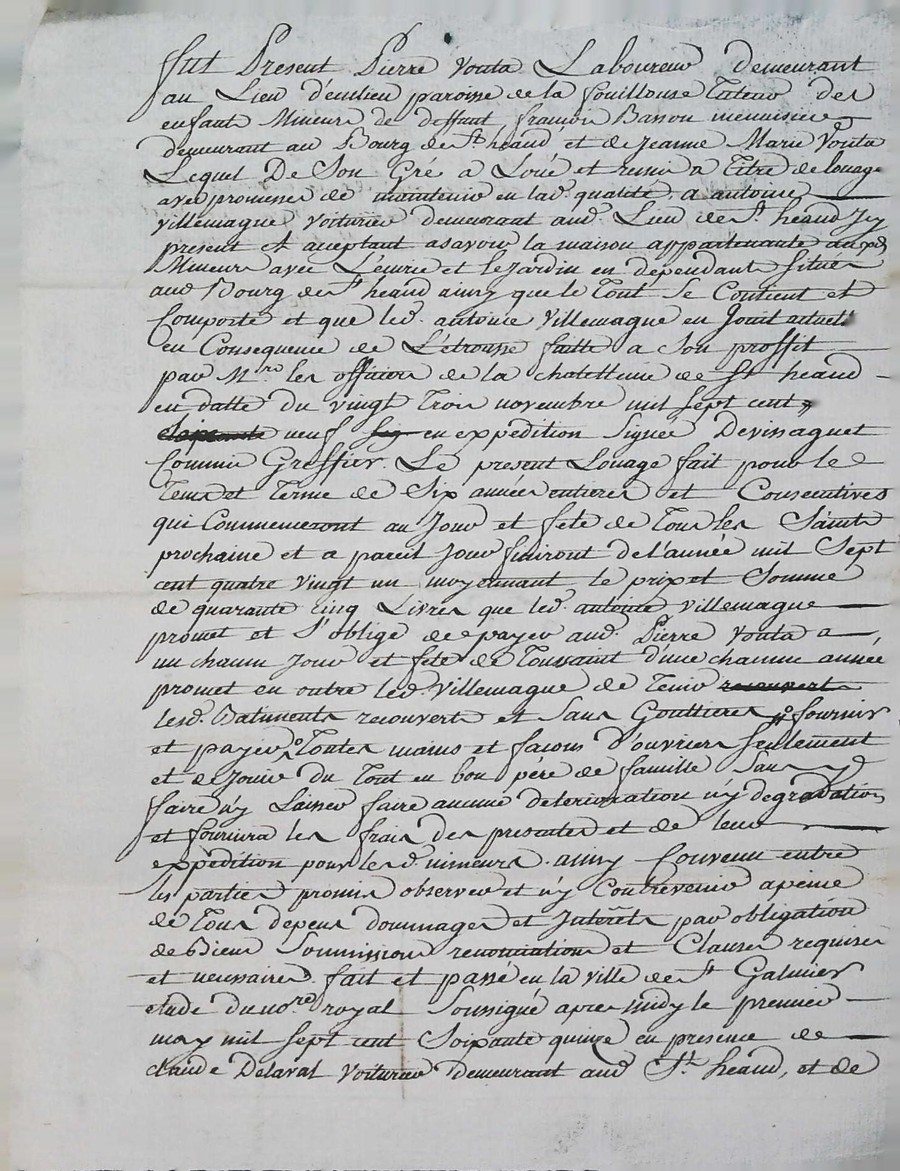 fut Present Pierre Vouta Laboureur demeurant
au Lieu d'eculieu paroisse de la fouillouse Tuteur des
enfants Mineurs de deffunt francois Basson menuisier
demeurant au Bourg de St heand et de Jeanne Marie Vouta
Lequel De Son Gré a Loué et remis a Titre de louage
avec promesse de maintenir en lad. qualité, a antoine
villemagne voiturier demeurant aud. Lieu de St heand Jcy
present et acceptant asavoir la maison appartenante auxd.
Mineurs avec L'ecurie et le Jardin en dépendants Situés
aud Bourg de St heand ainsy que le Tout Se Contient et
Comporte et que led. antoine Villemagne en Jouit actuelt
en Consequence de L'etrousse faitte a Son proffit
par Mrs les officiers de la chatellenie de St heand
en datte du vingt Trois novembre mil Sept cent
neuf en expedition Signée Devissaguet
Commis Greffier. Le present Louage fait pour le
Tems et Terme de Six années entieres et Consecutives
qui Commenceront au Jour et fete de Tous les Saints
prochaine et a pareil Jour finiront de l'année mil Sept
cent quatre vingt un moyennant le prix et Somme
de quarante Cinq Livres que led. antoine Villemagne
promet et S'oblige de payer aud. Pierre Vouta a
un chacun Jour et fete de Toussaint d'une chacune année
promet en outre led. Villemagne de Tenir recouverts
lesd. Batiments recouverts et Sans Gouttieres fournir
et payer Toutes mains et facons d'ouvriers Seulement
et de Jouir du Tout en bon pére de famille Sans y
faire n'y Laisser faire aucune deteriorration n'y degradation
et fournira les frais des presentes et de leur
expédition pour lesd. mineurs. ainsy Convenu entre
les parties promis observer et n'y Contrevenir apeine
de Tous depens dommages et Jnterêts par obligation
de Biens Soumissions renonciations et Clauses requises
et necessaires fait et passé en la ville de St Galmier
etude du nore royal Soussigné apres midy le premier
may mil Sept cent Soixante quinze en presence de
claude Delaval Voiturier demeurant aud St. heand, et de